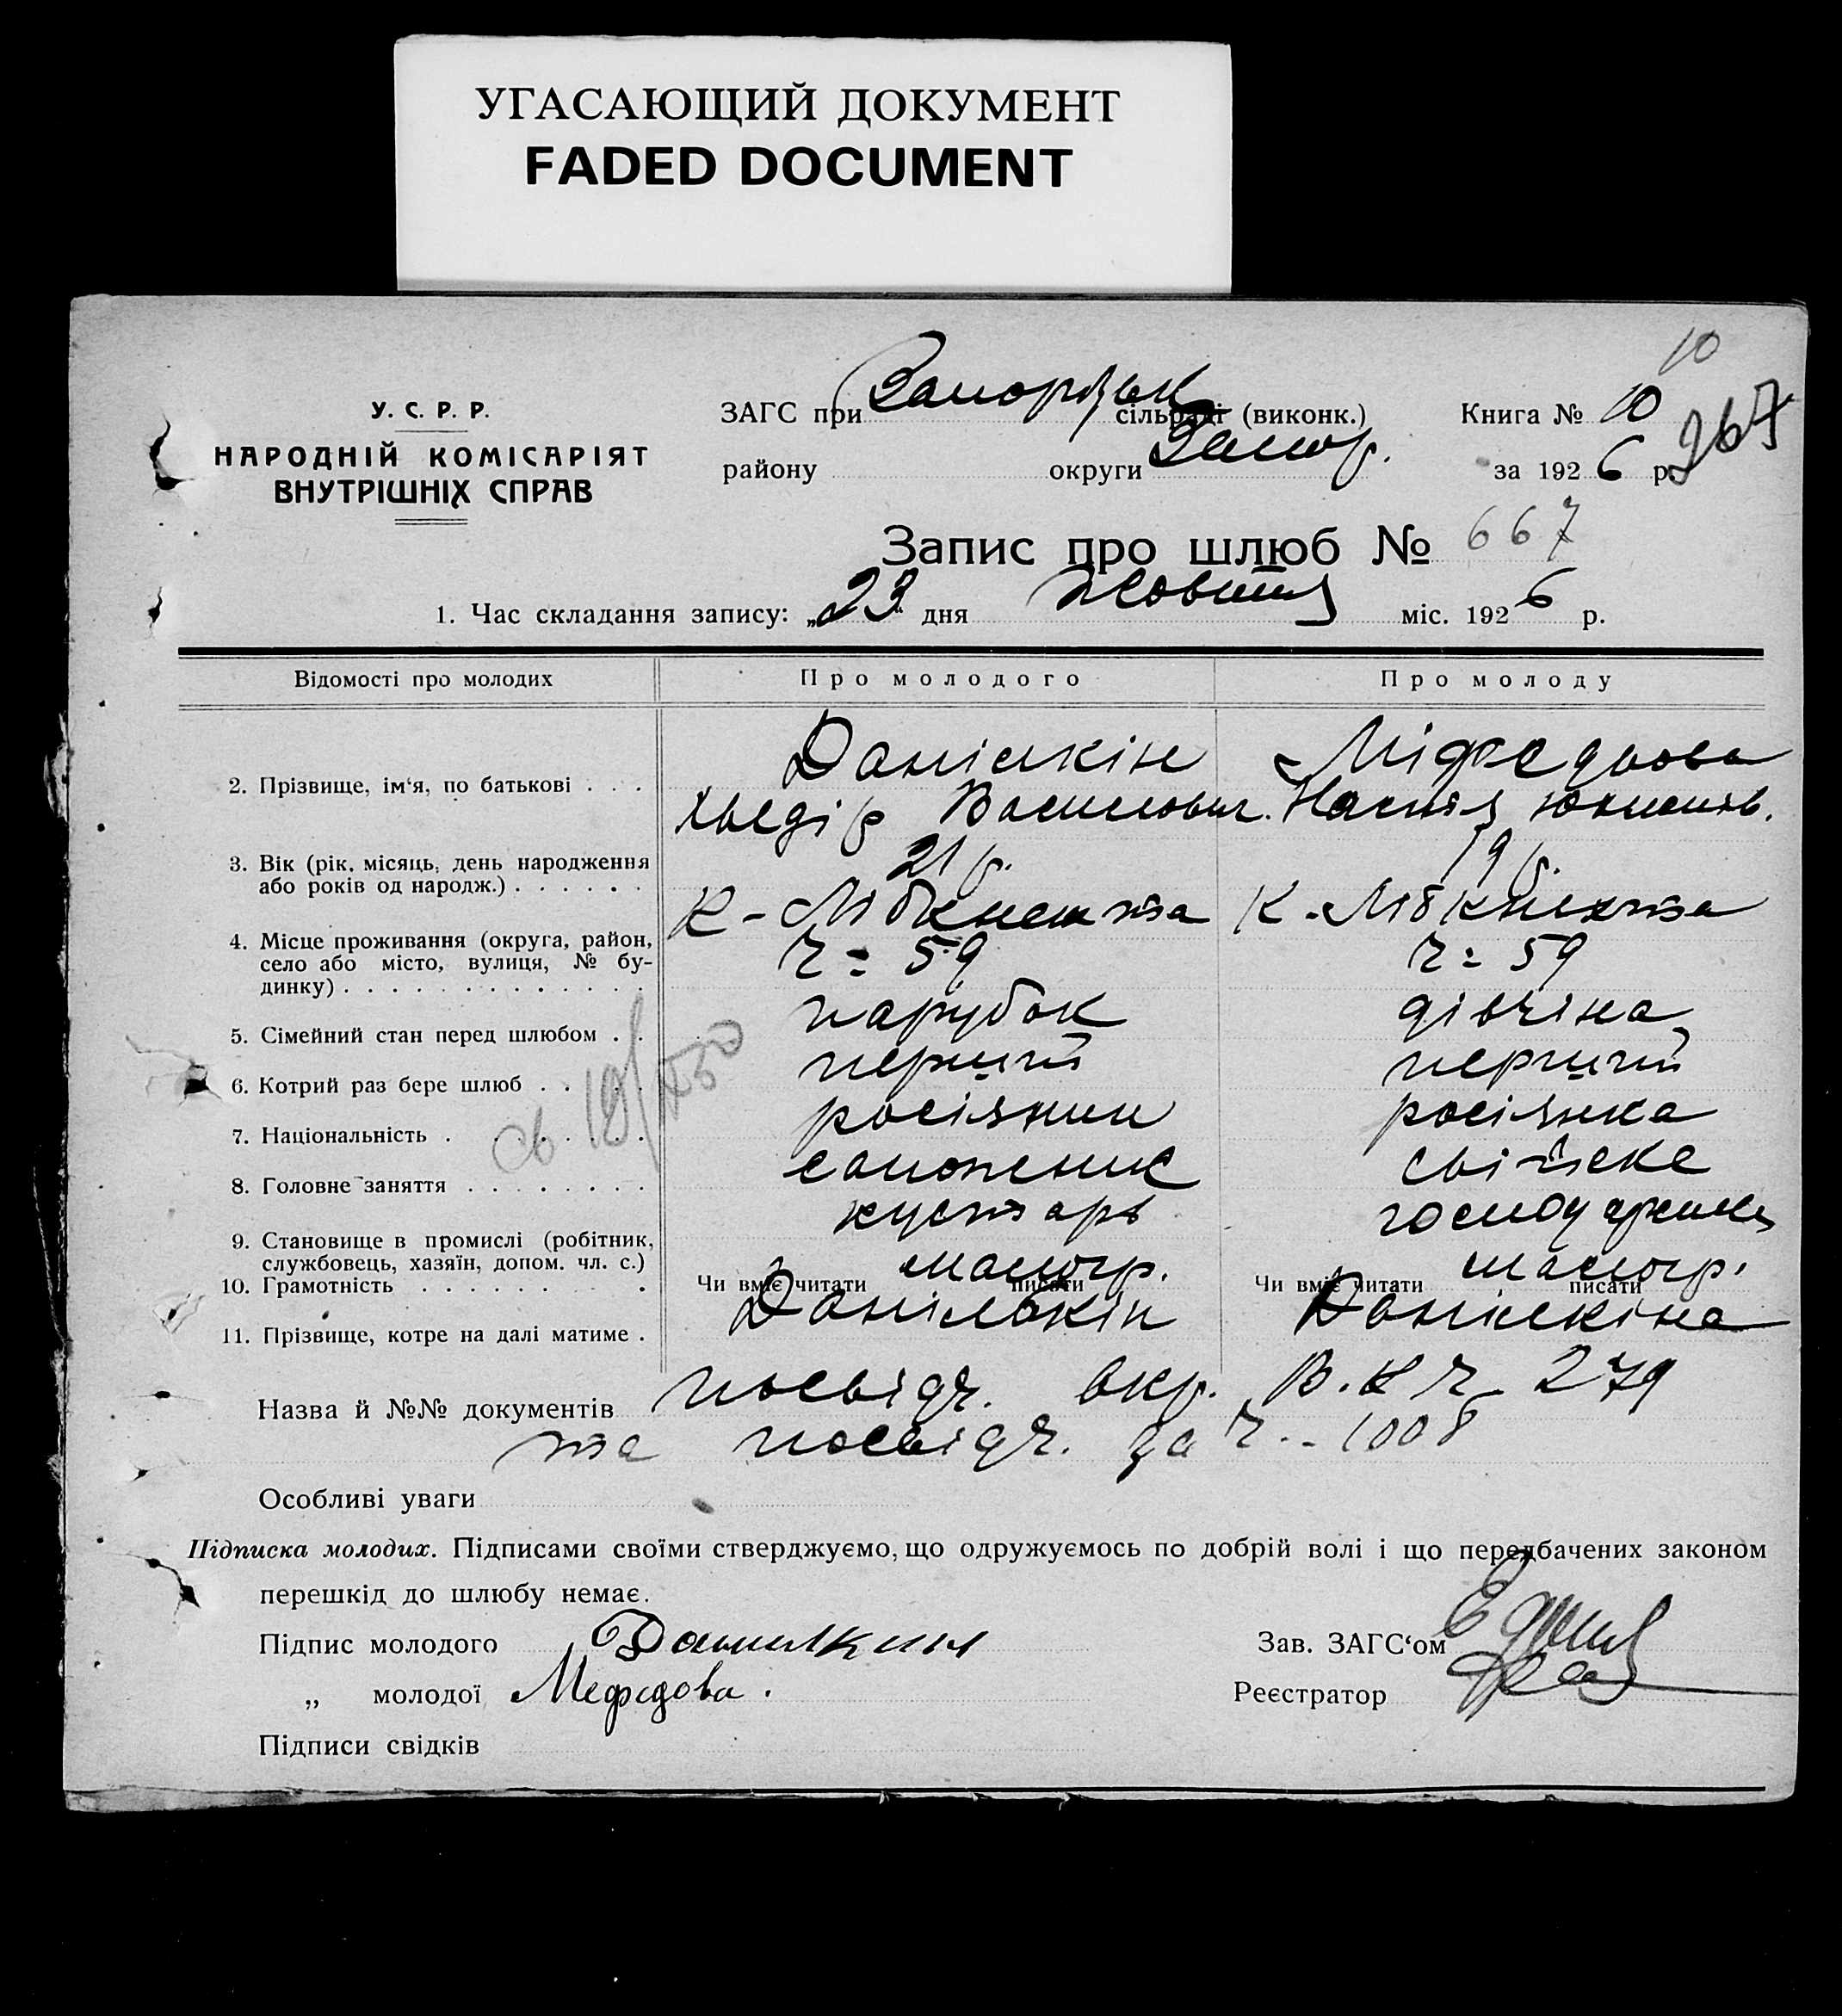 УГАСАЮЩИЙ ДОКУМЕНТ
FADED DOCUMENT
10
У. С. Р. Р.
НАРОДНІЙ КОМІСАРІЯТ
ВНУТРІШНІХ СПРАВ
ЗАГС при Запорізьк сільраді (виконк.) Книга № 10
267
району округи Запор. за 1926 р.
Запис про шлюб № 667
1. Час складання запису: „23 дня Жовтня міс. 1926 р.
Відомості про молодих Про молодого Про молоду
2. Прізвище, ім‘я, по батькові . . . Данілкін
Василович. Настя
3. Вік (рік, місяць, день народження або років од народж.) . . . . . . 21 р. 19 р.
4. Місце проживання (округа, район, село або місто, вулиця, № будинку) . . . . . . . . . . . . . К-Лібкнехта К.Лібкнехта
ч = 59 ч = 59
5. Сімейний стан перед шлюбом . . парубок дівчіна
6. Котрий раз бере шлюб . . . . . перший перший
7. Національність . . . . . . . росіянин росіянка
8. Головне заняття . . . . . . . . сапожник свійске
9. Становище в промислі (робітник, службовець, хазяїн, допом. чл. с.) кустарь
10. Грамотність . . . . . . . Чи вміє читати малогр. писати Чи вміє читати малогр. писати
11. Прізвище, котре на далі матиме . Данількін Данілкіна
Назва й №№ документів посвідч. окр. В.К ч 279
та посвідч. за ч. - 1008
Особливі уваги
Підписка молодих. Підписами своїми стверджуємо, що одружуємось по добрій волі і що передбачених законом
перешкід до шлюбу немає.
Підпис молодого Данилкин Зав. ЗАГС‘ом
„ молодої Мефедова. Реєстратор
Підписи свідків